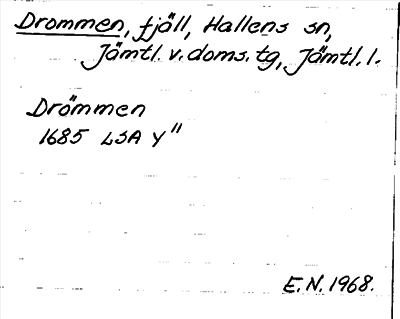 Drommen, fjäll, Hallens sn,
Jämtl. v. doms. tg, Jämtl. l.
Drömmen
1685 LSA Y"
E.N. 1968.